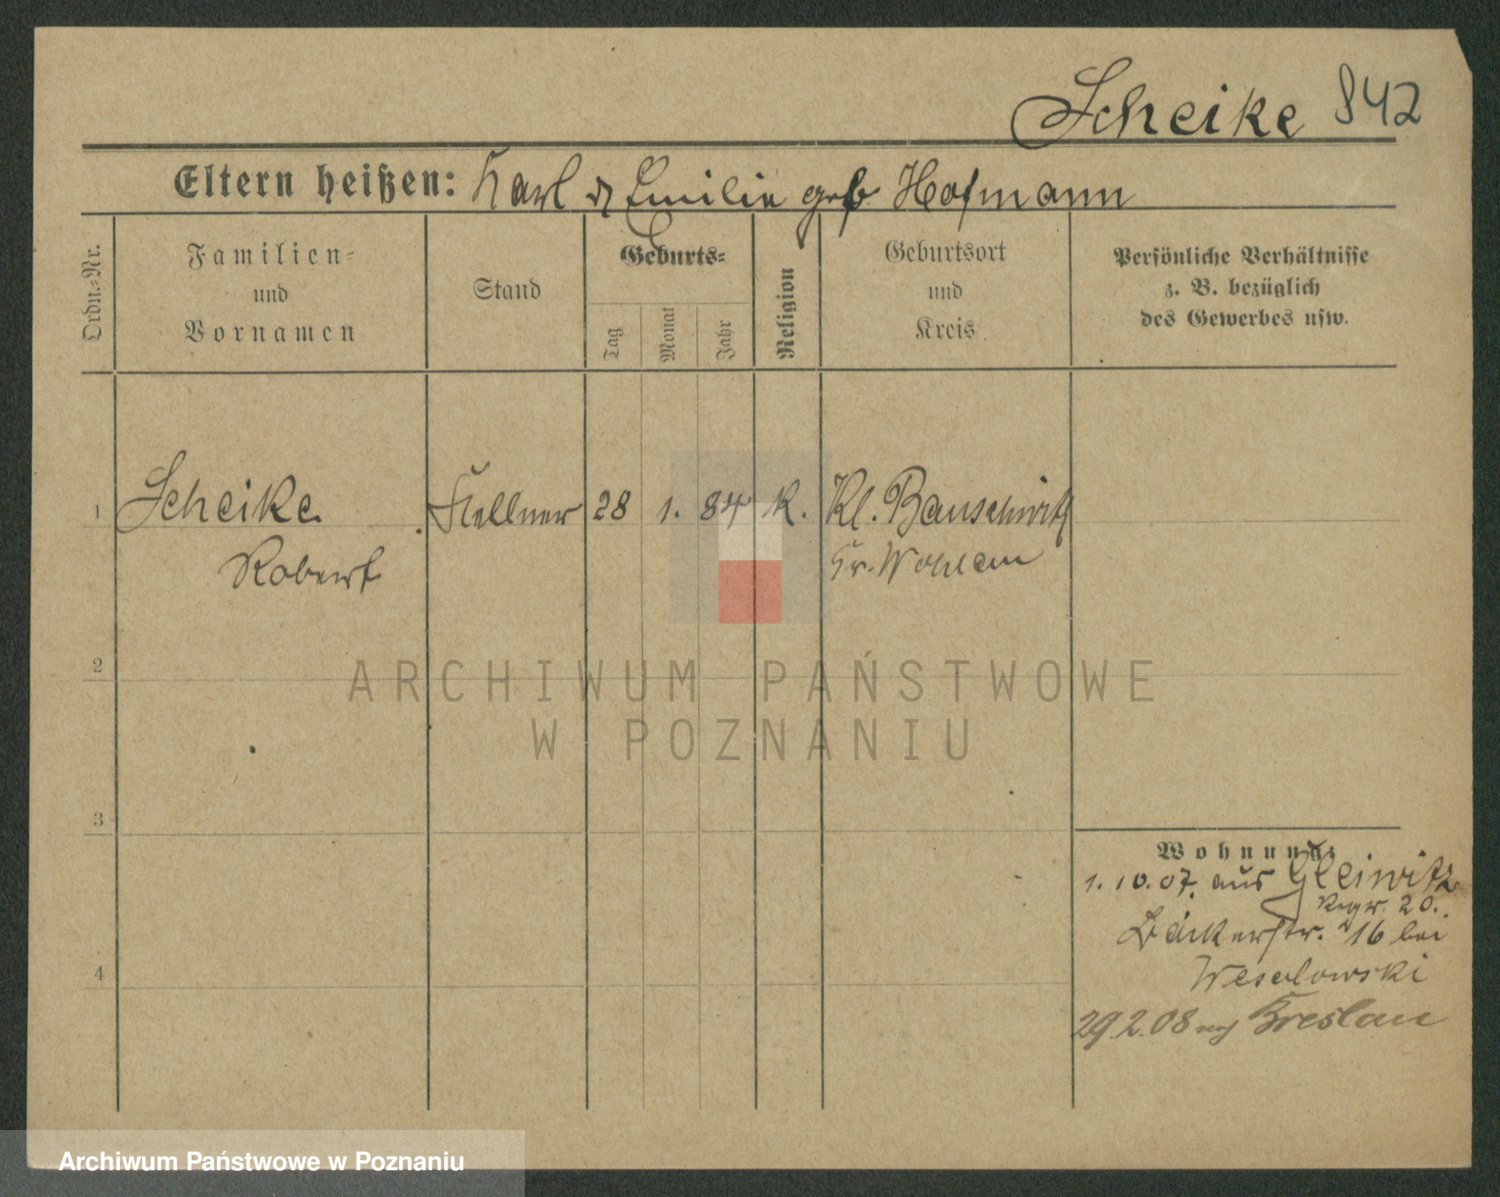 Scheike 842
Eltern heißen: Karl & Emilie geb Hofmann
Ordn.-Nr.
Familien-
und
Vornamen
Stand
Geburts-
Tag
Monat
Jahr
Religion
Geburtsort
und
Kreis
Persönliche Verhältnisse
z. B. bezüglich
des Gewerbes usw.
1 Scheike Kellner 28 1. 84 k. Kl. Bauschwitz
Robert Kr. Wohlau
2
3
4
Wohnung:
1.10.07. aus Gleiwitz
20.
Bäckerstr. 16 bei
Wesolowski
29.2.08 Breslau
ARCHIWUM PAŃSTWOWE
W POZNANIU
Archiwum Państwowe w Poznaniu